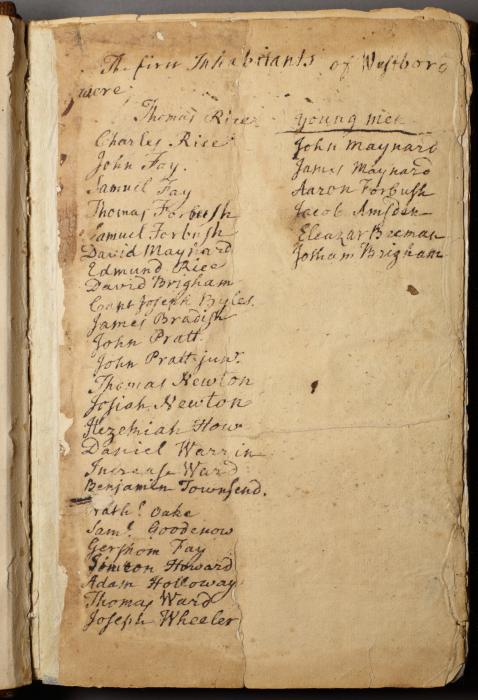 The first Inhabitants of Westboro
were
Thomas Rice
Charles Rice
John Fay.
Samuel Fay
Thomas Forbush
Samuel Forbush
David Maynard
Edmund Rice
David Brigham
Capt Joseph Byles.
James Bradish
John Pratt
John Pratt junr.
Thomas Newton
Josiah Newton
Hezekiah How
Daniel Warrin
Increase Ward
Benjamin Townsend.
Nathl. Oake
Saml. Goodenow
Gershom Fay
Simeon Howard
Adam Holloway
Thomas Ward
Joseph Wheeler
Young men
John Maynard
James Maynard
Aaron Forbush
Jacob Amsden
Eleazar Beeman
Jotham Brigham